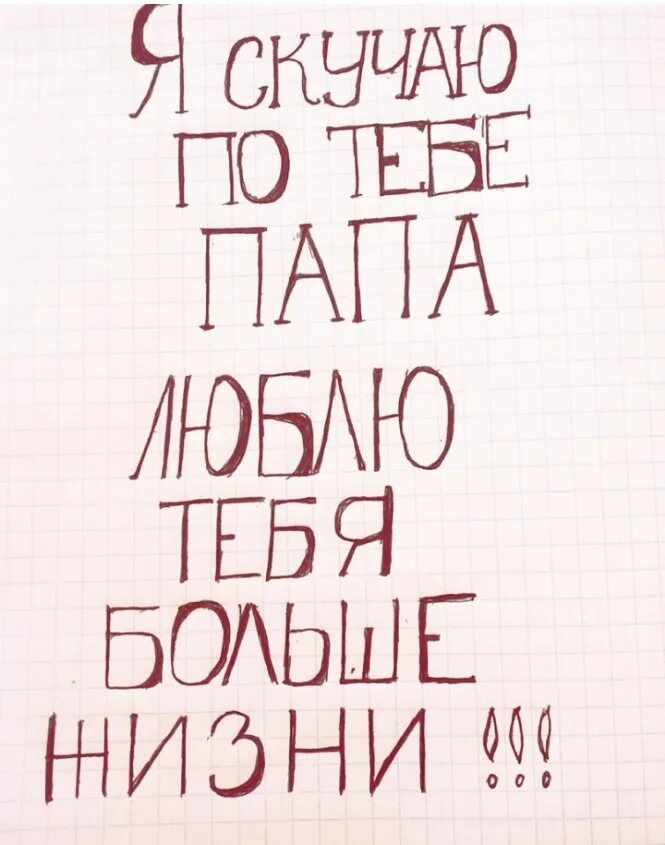 Я СКУЧАЮ
ПО ТЕБЕ
ПАПА
ЛЮБЛЮ
ТЕБЯ
БОЛЬШЕ
ЖИЗНИ !!!